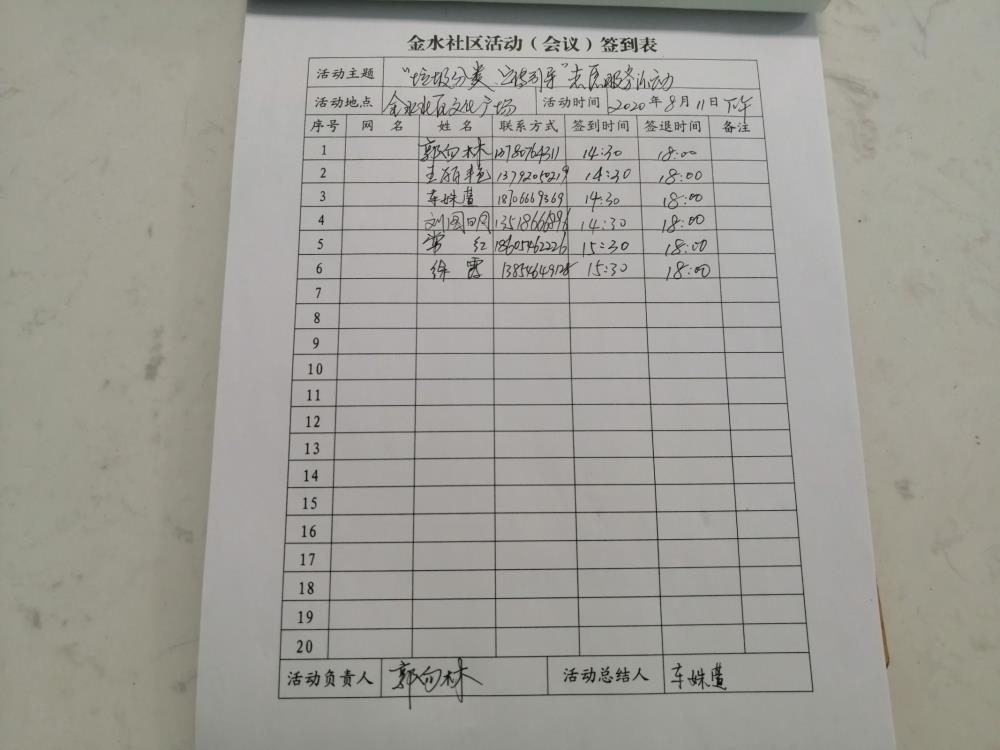 金水社区活动（会议）签到表
活动主题 "垃圾分类、宣传引导"志愿服务活动
活动地点 金水社区文化广场 活动时间 2020年8月11日下午
序号 网名 姓名 联系方式 签到时间 签退时间 备注
1 郭向林 14:30 18:00
2 王丽艳 13792050219 14:30 18:00
3 车姝萱 18706669369 14:30 18:00
4 刘国明 13518666896 14:30 18:00
5 常红 18605462226 15:30 18:00
6 徐霞 15:30 18:00
7
8
9
10
11
12
13
14
15
16
17
18
19
20
活动负责人 郭向林 活动总结人 车姝萱